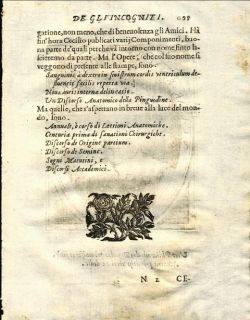 DE GL'INCOGNITI. 99
gazione, non meno, che di benuolenza gli Amici. Hà
fin'hora Cecilio publicati varij Componimenti, buo-
na parte de' quali perche và intorno con nome finto la-
scieremo da parte. Ma l'Opere, che col suo nome si
veggono di presente alle stampe, sono.
Sanguinis à dextro in sinistrum cordis ventriculum de-
fluentis facilis reperta via.
Noua auris interna delineatio.
Un Discorso Anatomico della Pinguedine.
Ma quelle, che s'aspettano in breue alla luce del mon-
do, sono.
Annuali, ò corso di Lettioni Anatomiche.
Centuria prima di sanationi Chirurgiche.
Discorso de Origine partium.
Discorso de Semine.
Sogni Matutini, e
Discorsi Accademici.
N 2 CE-